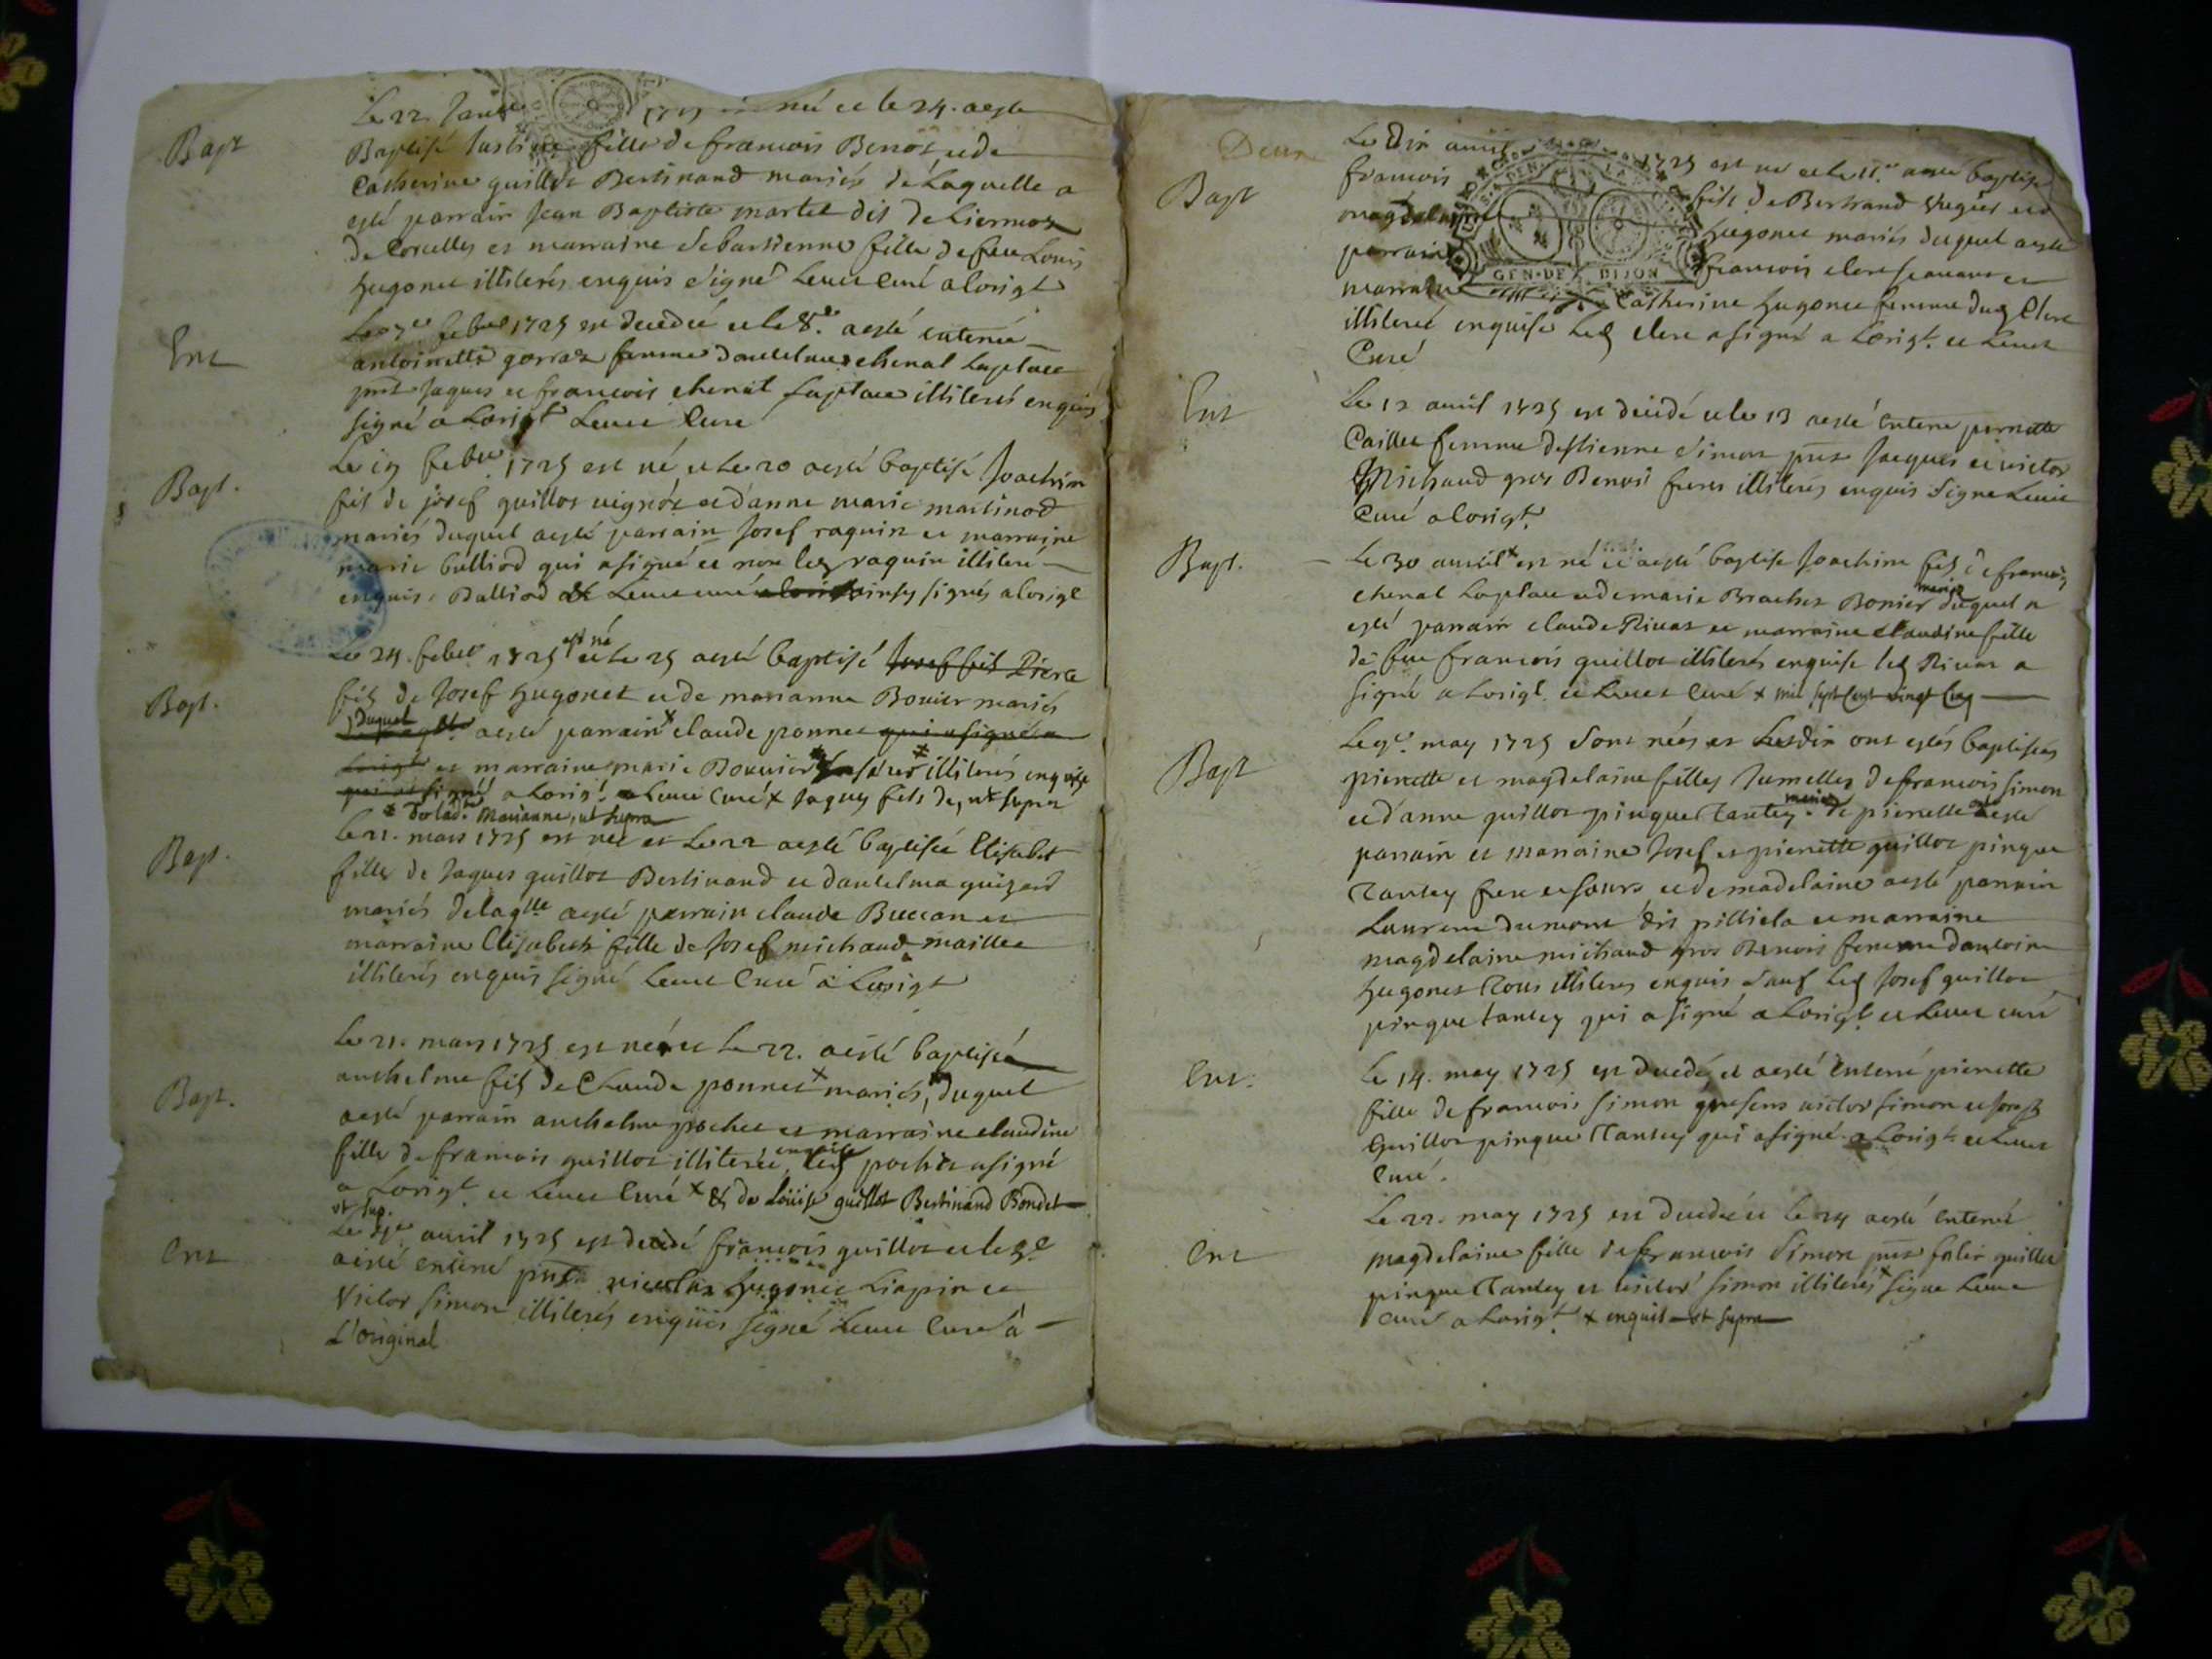 Bapt
Le 22. Janv 1725 née et le 24. a esté
Baptisé Justine fille de francois Benoit et de
Catherine guillot Bertinand mariés de Laquelle a
esté parrain Jean Baptiste martel dit De
de Corcelles et marraine Sebastienne fille de feu Louis
hugonet illiterés enquis signé Curé a lorigl
Ent
febver 1725 est decedée et le 8.e a esté enterrée
antoinette femme chenal Laplace
pnts Jaques et francois chenal Laplace illiterés enquis
signé a Lorigl Curé
Bapt.
Le 19 febver 1725 est né et Le 20 a esté baptisé Joachim
fils de josef guillot et d'anne marie martinod
mariés duquel a esté parrain Josef raquin et marraine
marie bulliod qui a signé et non led raquin illiteré
enquis. Bulliod & curé ainsy signés a lorigl
Bapt.
Le 24. febver 1725 est né et Le 25 a esté baptisé Josef fils Pierre
fils de Josef hugonet et de marianne Bonier mariés
Duquel a esté parrain x claude ponnet qui a signé a
Lorigl et marraine marie Bouvier sa soeur illiterés enquise
signé a Lorigl Curé x Jaques fils de, ut supra
Marianne, ut supra
Bapt.
Le 21. mars 1725 est née et Le 22 a esté baptisée Elisabet
fille de Jaques guillot Bertinand et d'antelma
mariés De laqlle a esté parrain claude et
marraine Elisabeth fille de Josef michaud maillet
illiterés enquis signé Curé a Lorigl
Bapt.
Le 21. mars 1725 est né et Le 22. a esté baptisé
anthelme fils de Claude ponnet x mariés, duquel
a esté parrain anthelme pochet et marraine claudine
fille de francois guillot illiterée enquise, led pochet a signé
a Lorigl et Curé x & de Loüise guillot Bertinand Bondet
ut sup.
Ent
Le avril 1725 est decedé francois guillot et le
a esté enterré pnts nicolas hugonet et
Victor simon illiterés enquis signé Curé a
L'original
Deux
Bapt
Le Dix avril 1725 est né et Le 11.e a esté baptisé
francois fils de Bertrand et
magdelaine hugonet mariés duquel a esté
parrain francois clerc et
marraine Catherine hugonet femme dud Clerc
illiterée enquise Led clerc a signé a Lorigl. et
Curé
GEN·DE DIJON
Ent
Le 12 avril 1725 est decedé et le 13 a esté Enterré pernette
Caillet femme d'Estienne Simon pnts Jacques et victor
Michaud gros Benoit freres illiterés enquis signé
Curé a lorigl.
Bapt.
Le 30 avril x est né et a esté baptisé Joachim fils de francois
chenal Laplace et de marie Brachet Bonier mariés duquel a
esté parrain claude Rivat et marraine claudine fille
de feu francois guillot illiterés enquise led Rivat a
signé a Lorigl et Curé x mil sept cent vingt cinq
Bapt
Le 9.e may 1725 sont nées et Le dix ont estés baptisées
pierrette et magdelaine filles Jumelles de francois simon
et d'anne guillot pinque Tantey mariés. De pierrette a esté
parrain et marraine Josef et pierrette guillot pinque
Tantey frere et soeurs et de madelaine a esté parrain
Laurent dumont dit et marraine
magdelaine michaud gros Benois femme d'antoine
hugonet Tous illiterés enquis sauf Led Josef guillot
pinque tantey qui a signé a Lorigl et curé
Ent.
Le 14. may 1725 est decedé, et a esté Enterré pierrette
fille de francois simon presens victor simon et Josef
Guillot pinque Tantey qui a signé a Lorigl. et
Curé.
Ent
Le 22. may 1725 est decedée et le 24 a esté Enterrée
magdelaine fille de francois Simon pnts guillot
pinque Tantey et victor simon illiterés x signé
Curé a Lorigl. x enquis ut supra